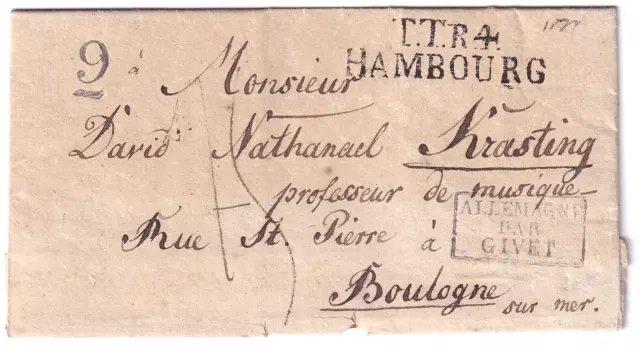 T.T.R.4.
HAMBOURG
9
à Monsieur
David Nathanael Krasting
professeur de musique
Rue St. Pierre à
Boulogne sur mer.
ALLEMAGNE
PAR
GIVET